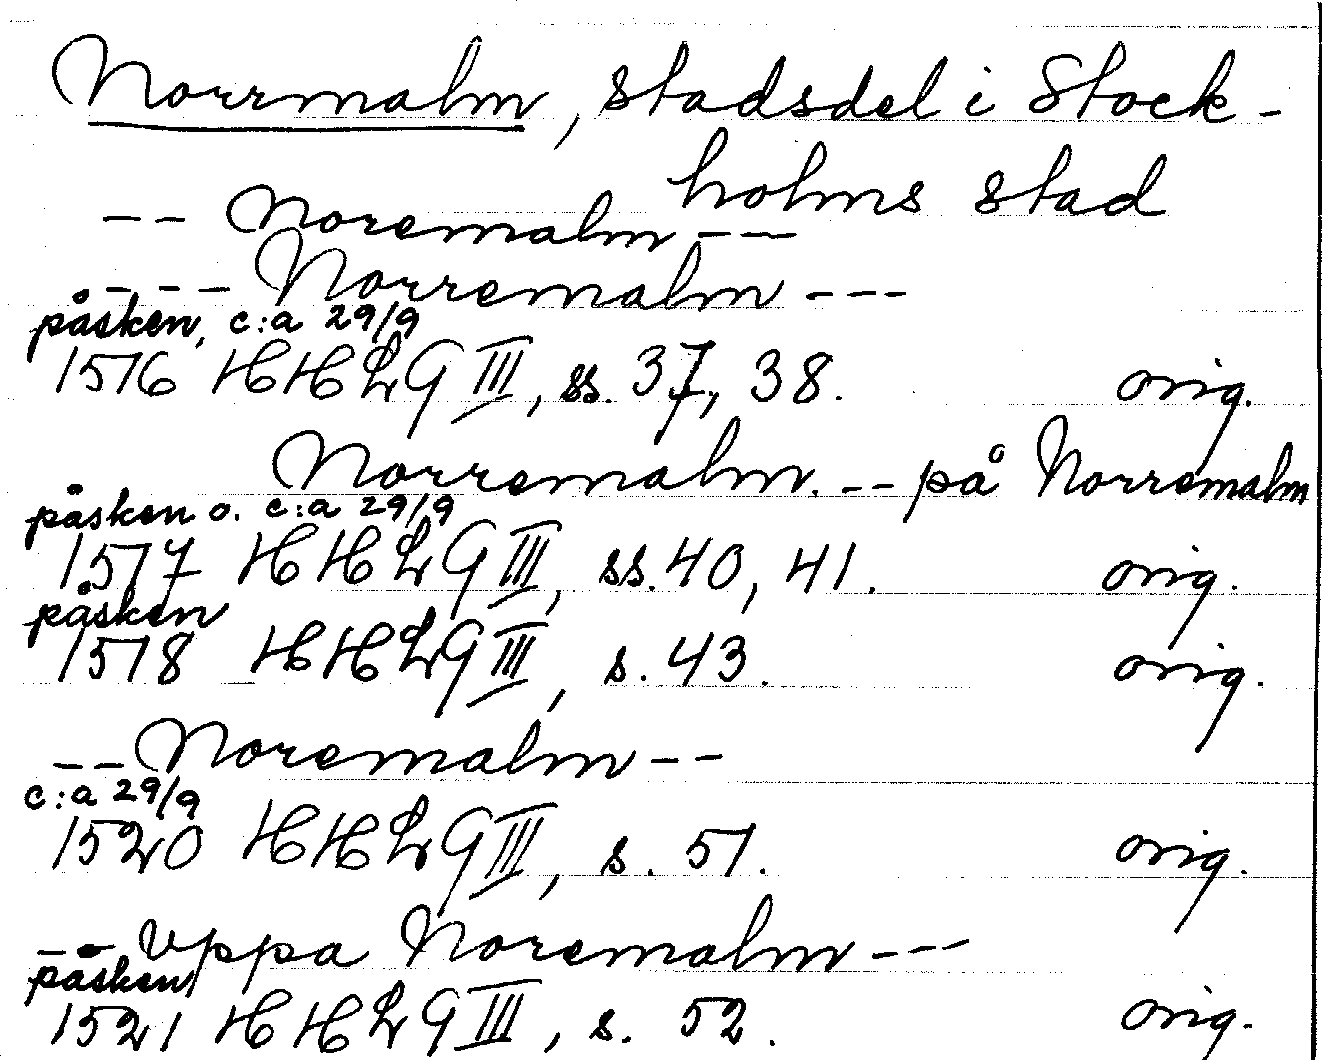 Norrmalm, stadsdel i Stock-
holms stad
-- Noremalm ---
---- Norremalm ---
påsken, c:a 29/9
1516 HHLG III, ss. 37, 38. orig.
Norremalm. -- på Norremalm
påsken o. c:a 29/9
1517 HHLG III, ss. 40, 41. orig.
påsken
1518 HHLG III, s. 43. orig.
-- Noremalm --
c:a 29/9
1520 HHLG III, s. 51. orig.
-- vppa Noremalm ---
påsken
1521 HHLG III, s. 52. orig.